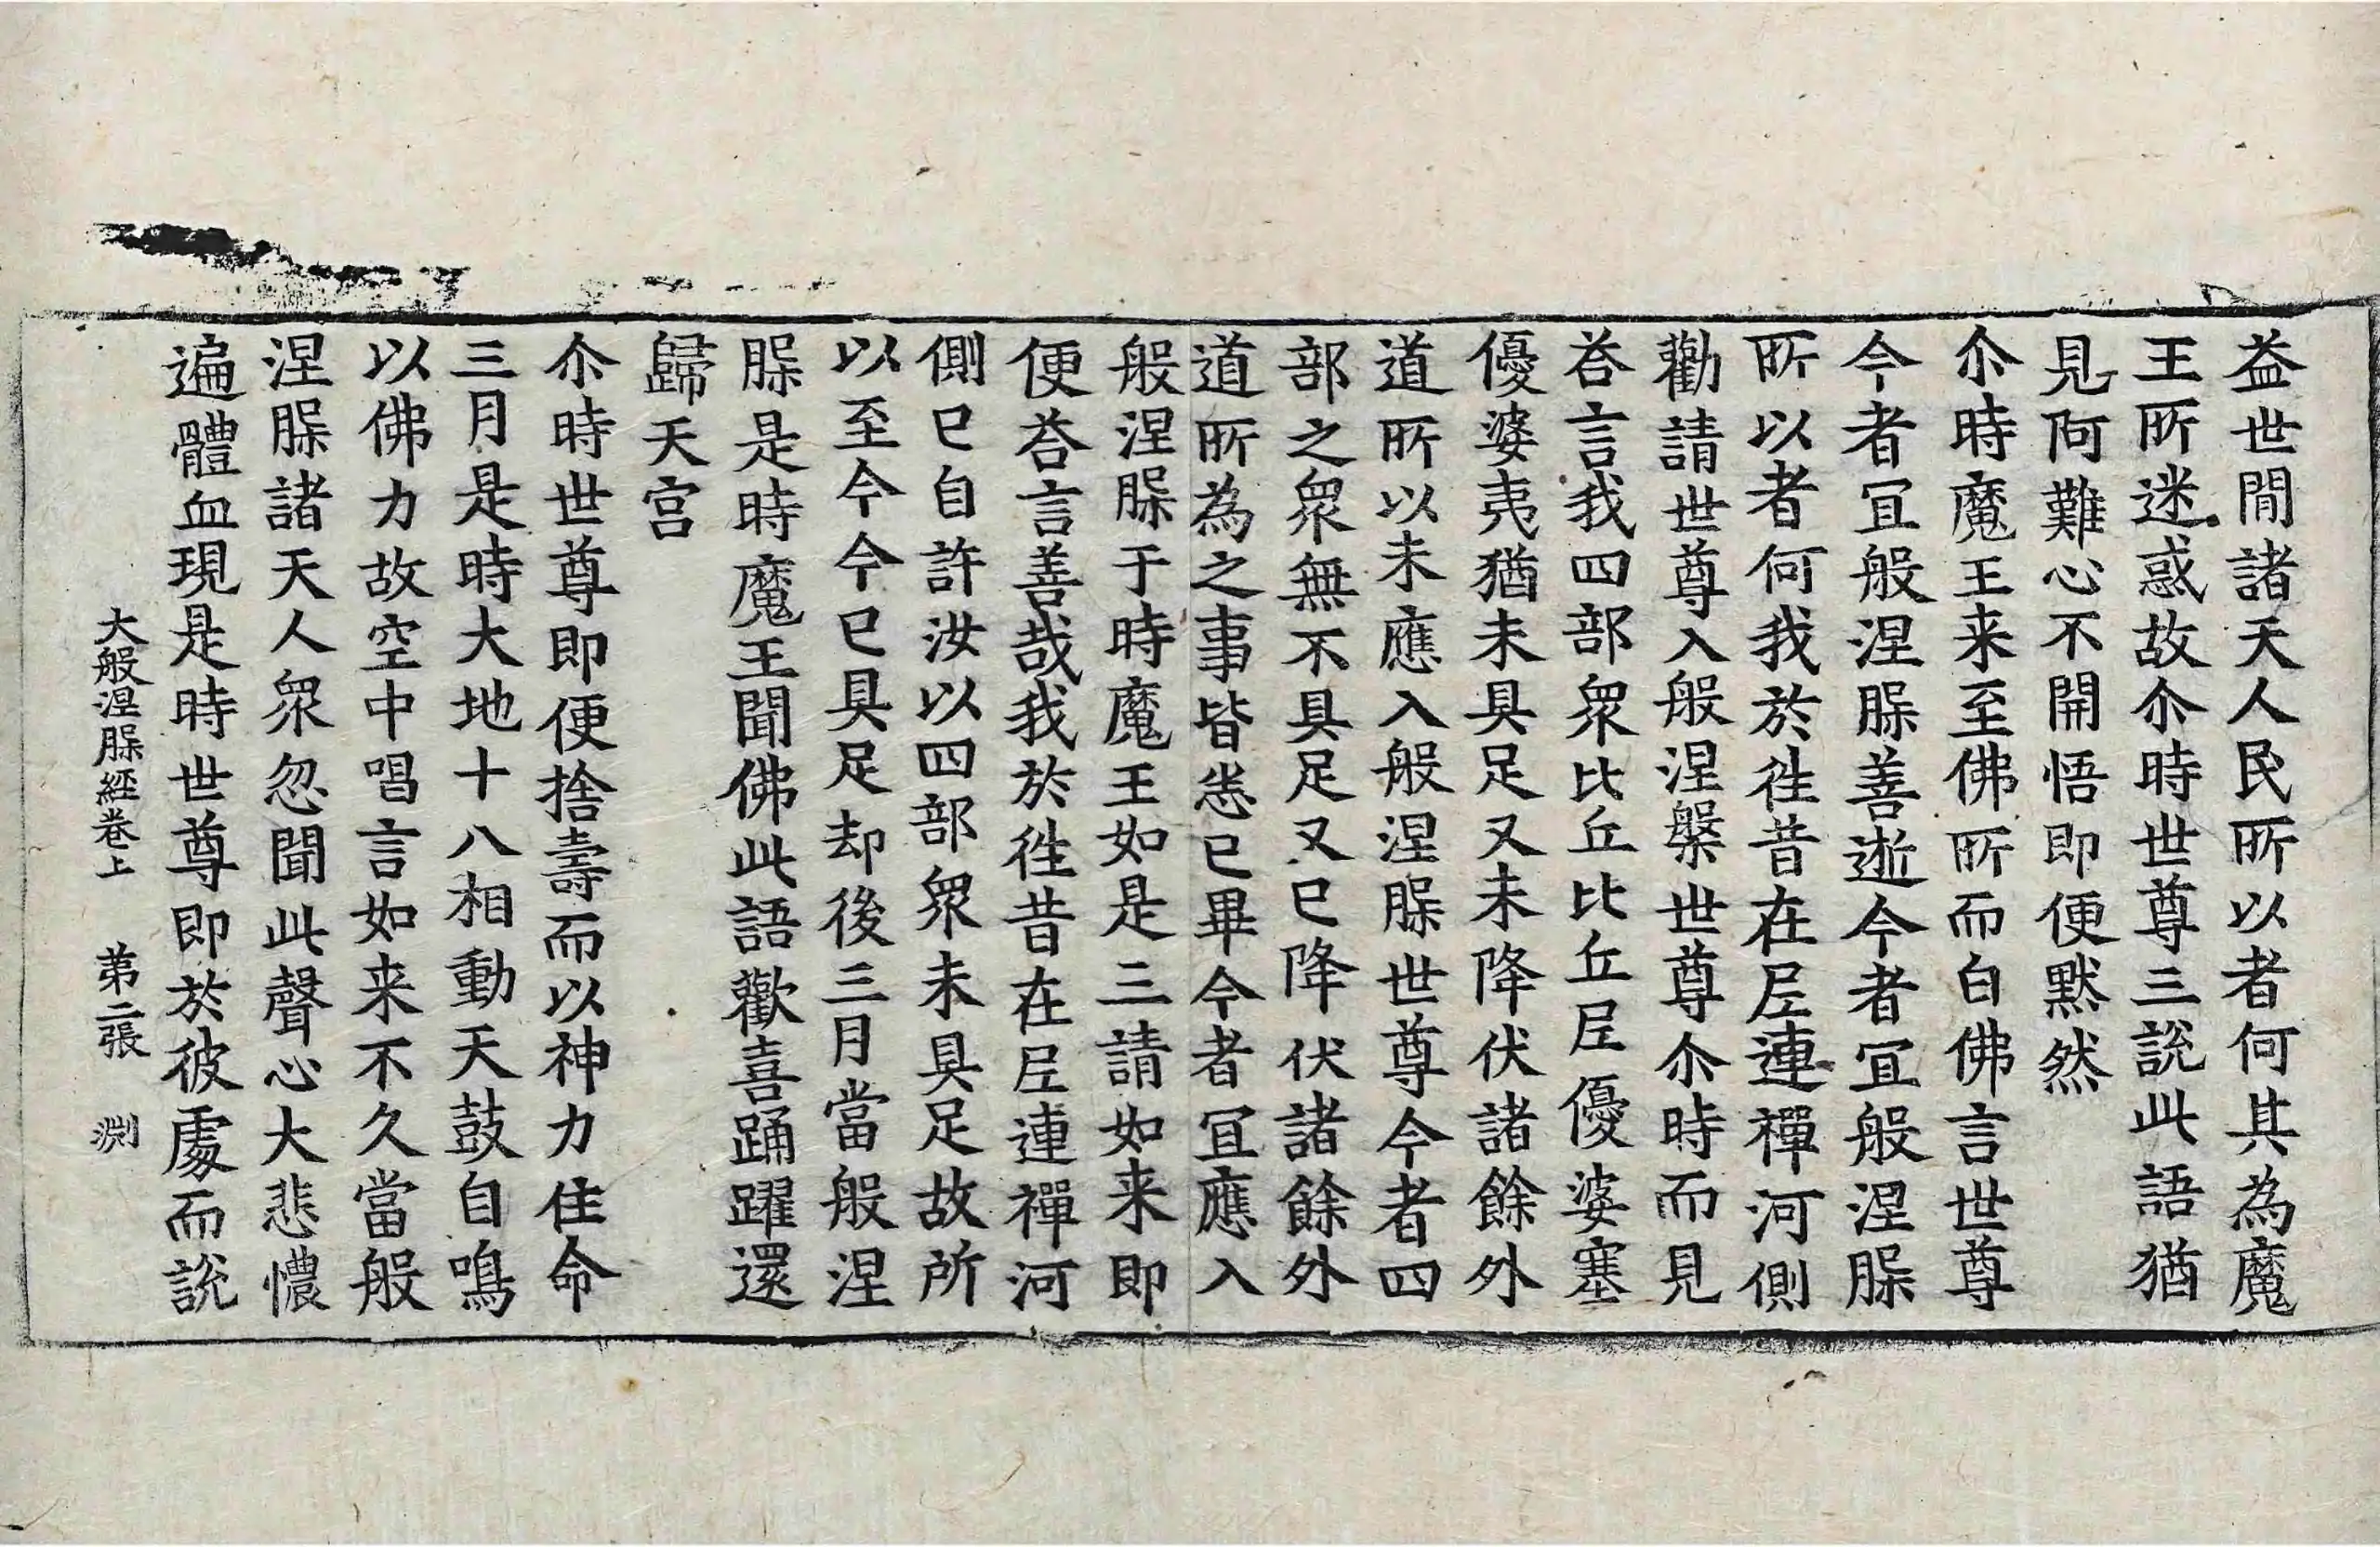 益世閒諸天人民所以者何其為魔
王所迷惑故尒時世尊三說此語猶
見阿難心不開悟即便默然
尒時魔王来至佛所而白佛言世尊
今者冝般涅𦙝善逝今者冝般涅𦙝
所以者何我於徃昔在𡰱連禪河側
勸請世尊入般涅槃世尊尒時而見
荅言我四部衆比丘比丘𡰱優婆塞
優婆夷猶未具足又未降伏諸餘外
道所以未應入般涅𦙝世尊今者四
部之衆無不具足又已降伏諸餘外
道所為之事皆悉已畢今者冝應入
般涅𦙝于時魔王如是三請如来即
便荅言善哉我於徃昔在𡰱連禪河
側已自許汝以四部衆未具足故所
以至今今已具足却後三月當般涅
𦙝是時魔王聞佛此語歡喜踊躍還
歸天宫
尒時世尊即便捨壽而以神力住命
三月是時大地十八相動天鼓自鳴
以佛力故空中唱言如来不久當般
涅𦙝諸天人衆忽聞此聲心大悲懷
遍體血現是時世尊即於彼處而說
大般涅𦙝經卷上 第二張 渕